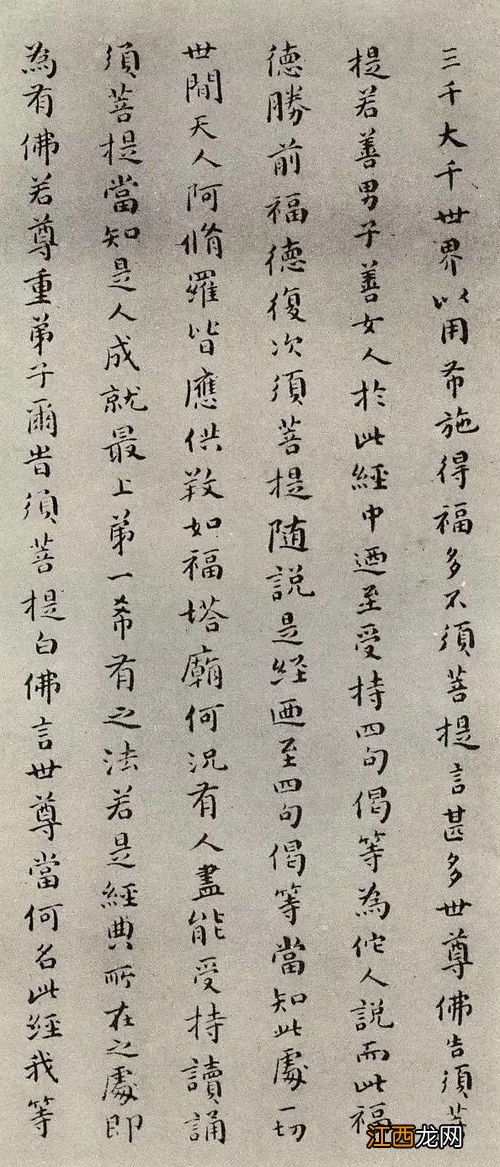 三千大千世界以用布施得福多不須菩提言甚多世尊佛告須菩
提若善男子善女人於此經中迺至受持四句偈等為佗人說而此福
德勝前福德復次須菩提随說是經迺至四句偈等當知此處一切
世間天人阿脩羅皆應供𢼝如福塔廟何況有人盡能受持讀誦
須菩提當知是人成就最上第一希有之法若是經典所在之處即
為有佛若尊重弟子爾旹須菩提白佛言世尊當何名此經我等
江西龙网